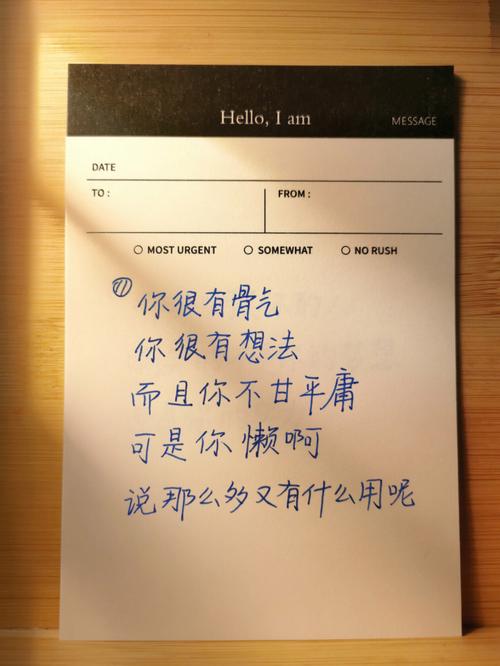 Hello, I am
MESSAGE
DATE
TO :
FROM :
MOST URGENT SOMEWHAT NO RUSH
你很有骨气
你很有想法
而且你不甘平庸
可是你懒啊
说那么多又有什么用呢